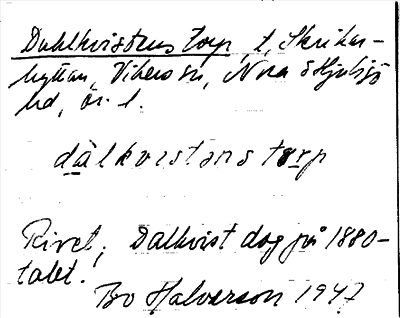 Dahlkvistens torp, t, Skrikar-
hyttan, Vikers sn, Nora o Hjulsjö
hd, Ör. l.
dàlkvistəns tɷrp
Rivet; Dalkvist dog på 1880-
talet.
Bo Halvarson 1947